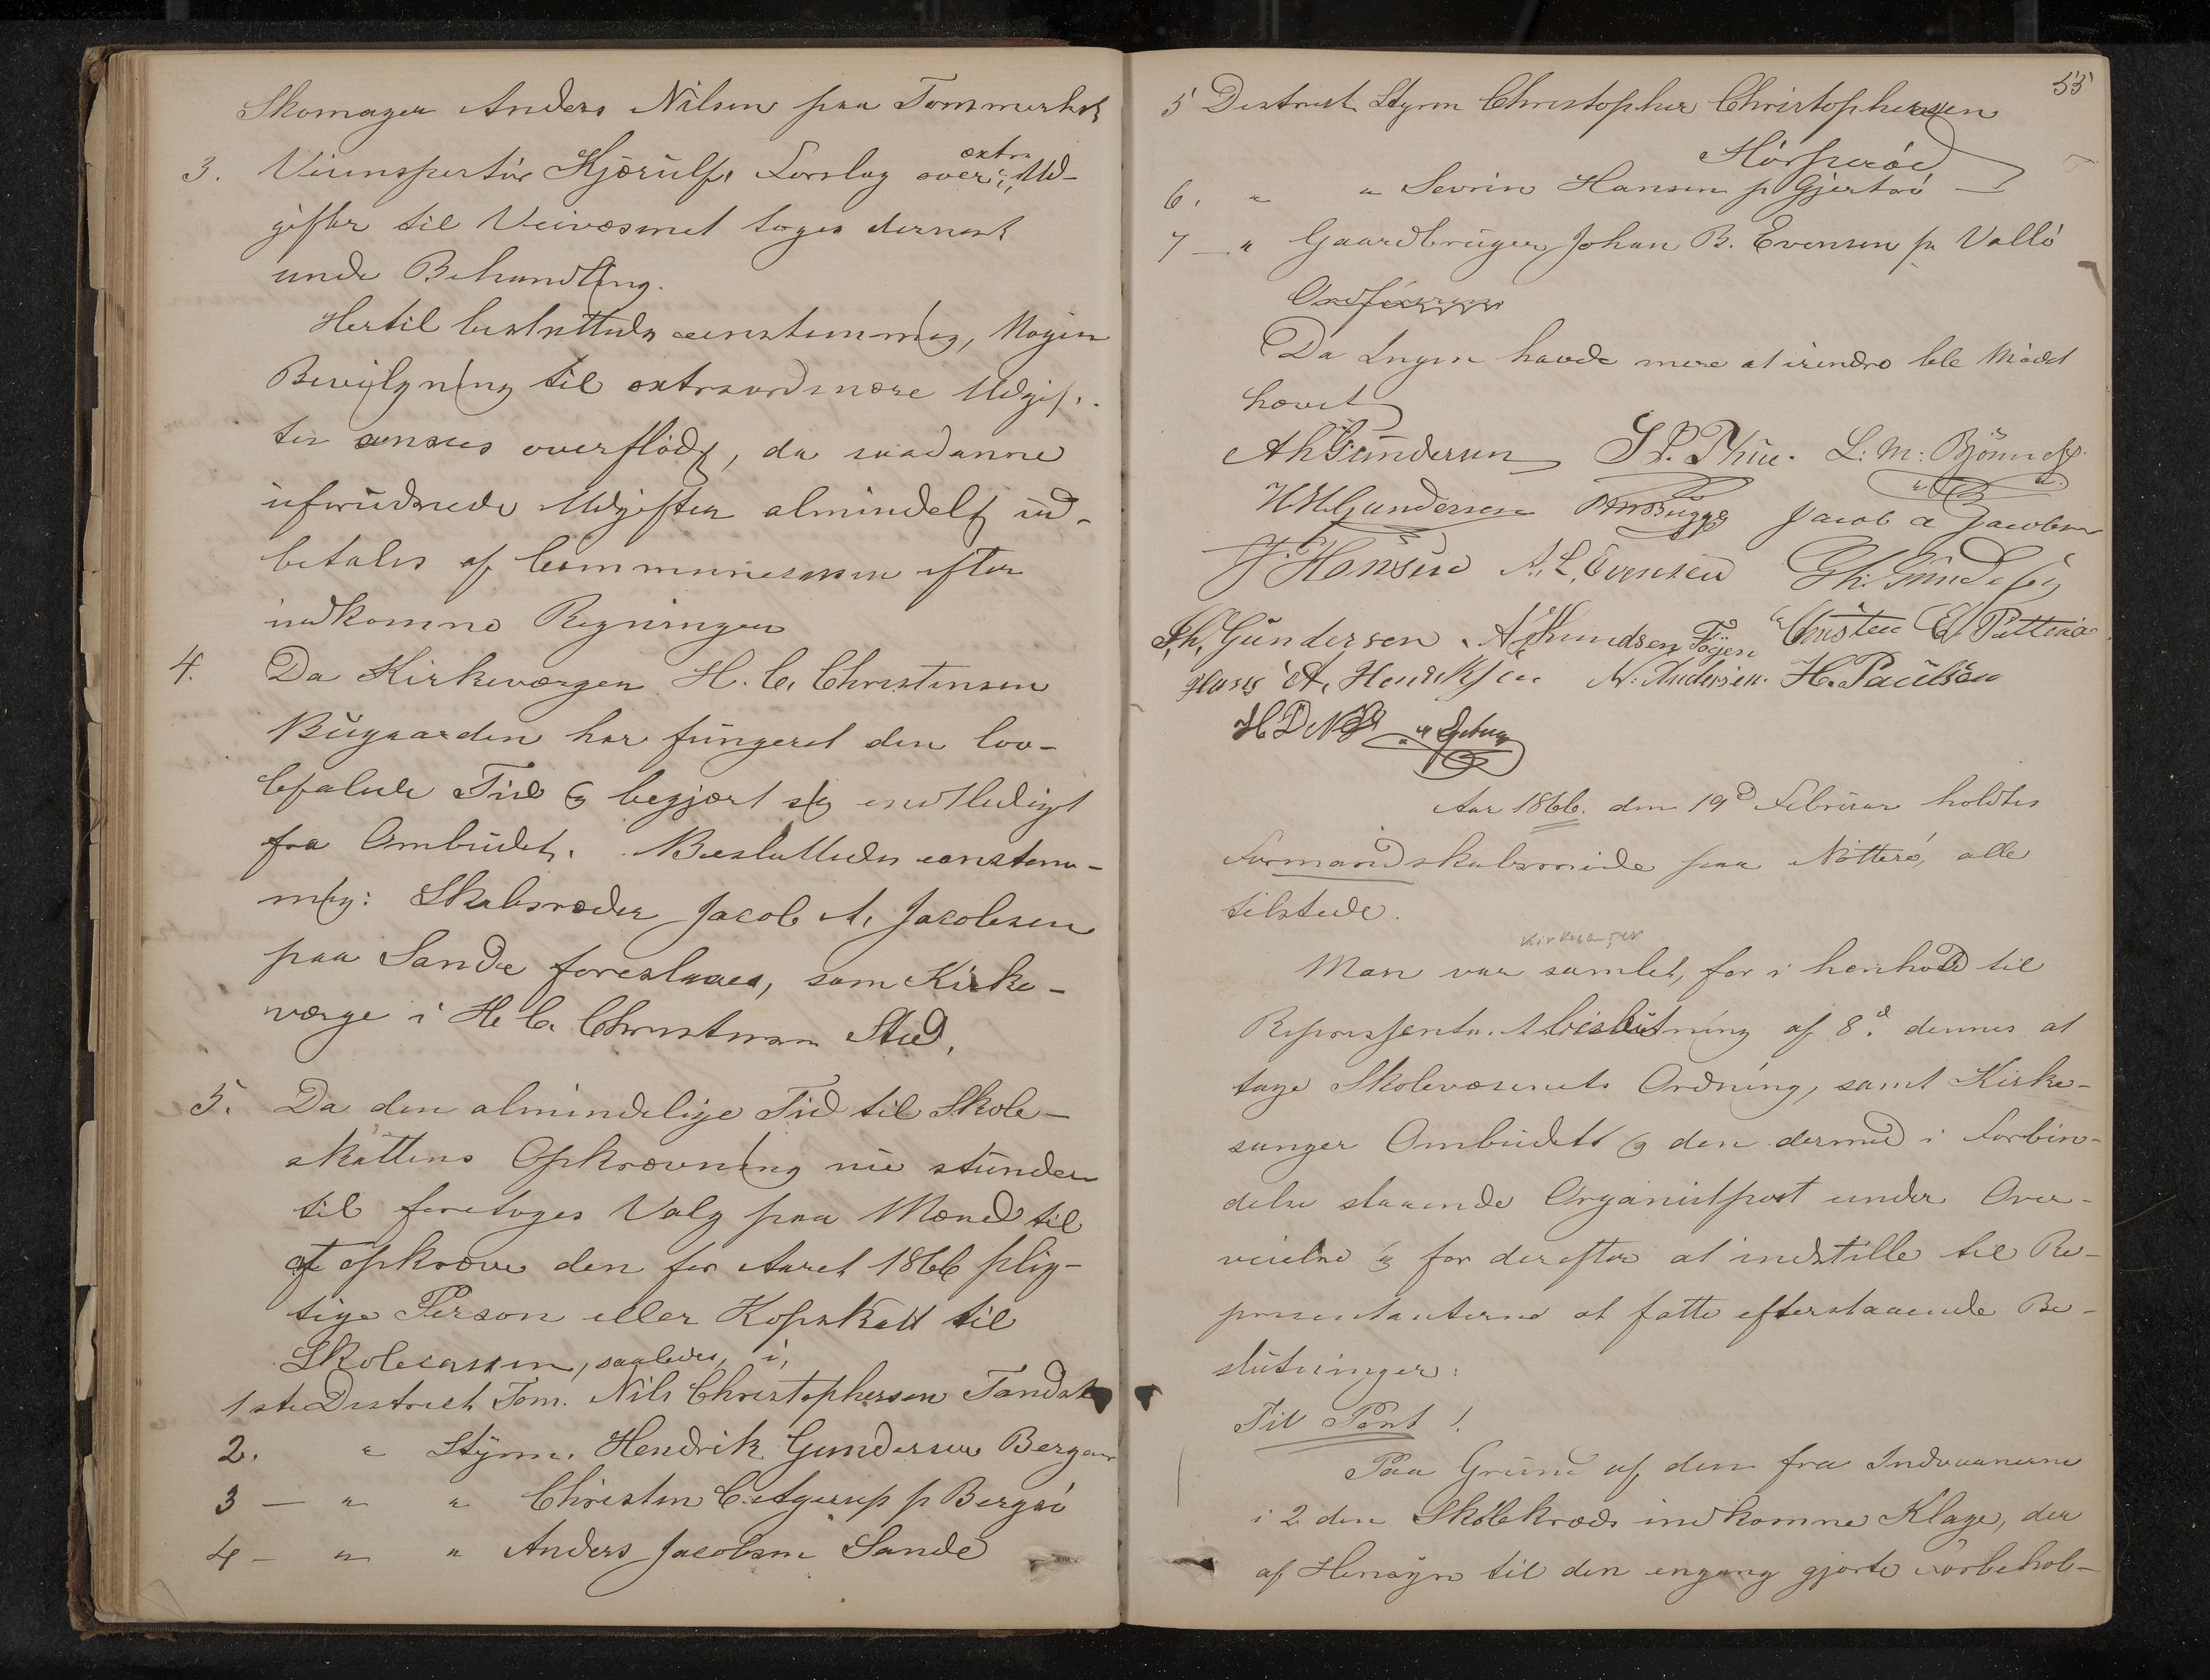 Skomager Anders Nilsen paa Tommerholt
3. Veiinspectör Kjærulfs Forslag over extra Ud-
gifter til Veivæsenet toges dernæst
under Behandling.
Hertil besluttedes eenstemmig, Nogen
Bevilgning til extraordinære Udgif-
ter ansees overflödig, da saadanne
uforudseede Udgifter almindelig ud-
betales af Communecassen efter
indkomne Regninger
4. Da Kirkeværgen H. C. Christensen
Bugaarden har fungeret den lov-
befalede Tid og begjært sig entlediget
fra Ombudet. Besluttedes eenstem-
mig: Skibsreder Jacob A. Jacobsen
paa Sande foreslaaes, som Kirke-
værge i H. C. Christensen Sted.
5. Da den almindelige Tid til Skole-
skattens Opkrævning nu stunder
til foretoges Valg paa Mænd til
at opkræve den for Aaret 1866 plig-
tige Person eller Kopskatt til
Skolecassen, saaledes, i,
1ste District Tom. Nils Christophersen
2. " Styrm. Hendrik Gundersen Bergan
3 — " " Christen C. Agerup p Bergan
4 — " " Anders Jacobsen Sande
55
5 District Styrm Christopher Christophersen
6. " " Sevrin Hansen p Gjerterö
7 — " Gaardbruger Johan B. Evensen pa Vallö
Da Ingen havde mere at erindre blev Mödet
hævet
A h Gundersen L. M. Björnness
H M Gundersen Bugge Jacob A Jacobsen
J. Hansen A. L. Evensen
Th. Gundersen A. Amundsen Föyen Christen E. Putten
Hans A. Henriksen N. Andersen. H. Paulsen
Aar 1866. den 19d Februar holdtes
Formandskabsmöde paa Nötterö, alle
tilstede.
Kirkesanger
Man var samlet, for i henhold til
Repræsentant beslutning af 8d dennes at
tage Skolevæsenets Ordning, samt Kirke-
sanger Ombudet og den dermed i Forbin-
delse staaende Organistpost under Over-
veielse og for derefter at indstille til Re-
præsentanterne at fatte efterstaaende Be-
slutninger:
Til Post 1.
Paa Grund af den fra Indvaanerne
i 2 den Skolekreds indkomne Klage, der
af Hensyn til den engang gjorte Forbehol-